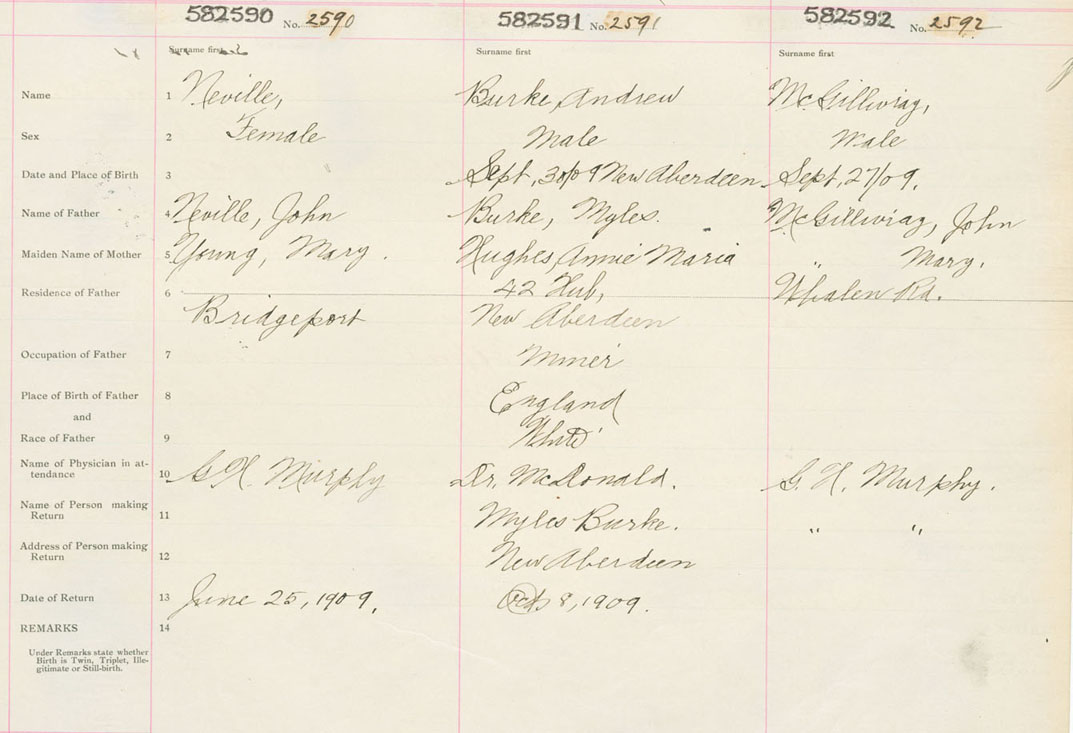 582590 No. 2590 582591 No. 2591 582592 No. 2592
Surname first Surname first Surname first
Name 1 Neville, Burke, Andrew McGillivray,
Sex 2 Female Male Male
Date and Place of Birth 3 Sept, 30/09 New Aberdeen Sept, 27/09.
Name of Father 4 Neville, John Burke, Myles. McGillivray, John
Maiden Name of Mother 5 Young, Mary. Hughes, Annie Maria " Mary.
Residence of Father 6 42 Hub, Whalen Rd.
Bridgeport New Aberdeen
Occupation of Father 7 Miner
Place of Birth of Father 8 England
and
Race of Father 9 White
Name of Physician in at-
tendance 10 G H Murphy Dr. McDonald. G. H. Murphy.
Name of Person making
Return 11 Myles Burke. " "
Address of Person making
Return 12 New Aberdeen
Date of Return 13 June 25, 1909. Oct 8, 1909.
REMARKS 14
Under Remarks state whether
Birth is Twin, Triplet, Ille-
gitimate or Still-birth.